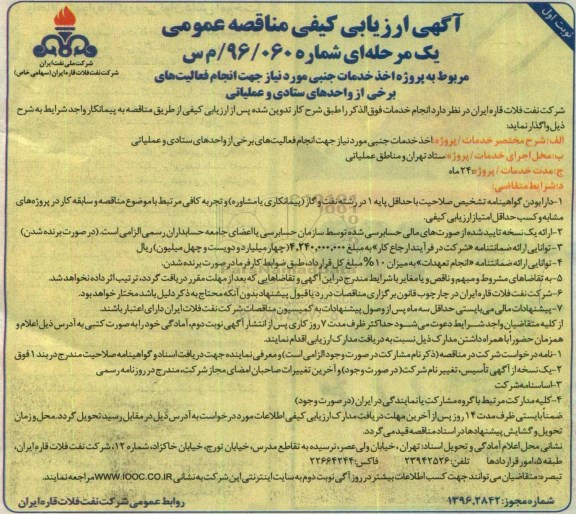 نوبت اول
شرکت ملی نفت ایران
شرکت نفت فلات قاره ایران (سهامی خاص)
آگهی ارزیابی کیفی مناقصه عمومی
یک مرحله‌ای شماره ۹۶/۰۶۰/م س
مربوط به پروژه اخذ خدمات جنبی مورد نیاز جهت انجام فعالیت‌های
برخی از واحدهای ستادی و عملیاتی
شرکت نفت فلات قاره ایران در نظر دارد انجام خدمات فوق‌الذکر را طبق شرح کار تدوین شده پس از ارزیابی کیفی از طریق مناقصه به پیمانکار واجد شرایط به شرح
ذیل واگذار نماید:
الف: شرح مختصر خدمات / پروژه: اخذ خدمات جنبی مورد نیاز جهت انجام فعالیت‌های برخی از واحدهای ستادی و عملیاتی
ب: محل اجرای خدمات / پروژه: ستاد تهران و مناطق عملیاتی
ج: مدت خدمات / پروژه: ۲۴ ماه
د: شرایط متقاضی:
۱- دارا بودن گواهینامه تشخیص صلاحیت با حداقل پایه ۱ در رشته نفت و گاز (پیمانکاری یا مشاوره) و تجربه کافی مرتبط با موضوع مناقصه و سابقه کار در پروژه‌های
مشابه و کسب حداقل امتیاز ارزیابی کیفی.
۲- ارائه یک نسخه تایید شده از صورت‌های مالی حسابرسی شده توسط سازمان حسابرسی یا اعضای جامعه حسابداران رسمی الزامی است. (در صورت برنده شدن)
۳- توانایی ارائه ضمانتنامه «شرکت در فرآیند ارجاع کار» به مبلغ ۴,۲۴۰,۰۰۰,۰۰۰ (چهار میلیارد و دویست و چهل میلیون) ریال
۴- توانایی ارائه ضمانتنامه «انجام تعهدات» به میزان ۱۰% مبلغ کل قرارداد، طبق ضوابط کارفرما در صورت برنده شدن.
۵- به تقاضاهای مشروط و مبهم و ناقص و یا مغایر با شرایط مندرج در این آگهی و تقاضاهایی که بعد از مهلت مقرر دریافت گردد، ترتیب اثر داده نخواهد شد.
۶- شرکت نفت فلات قاره ایران در چارچوب قانون برگزاری مناقصات در رد یا قبول پیشنهاد بدون آنکه محتاج به ذکر دلیل باشد مختار خواهد بود.
۷- پیشنهادات مالی می‌بایستی حداقل سه ماه پس از وصول پیشنهادات به کمیسیون مناقصات شرکت نفت فلات ایران دارای اعتبار باشند.
از کلیه متقاضیان واجد شرایط دعوت می‌شود حداکثر ظرف مدت ۷ روز کاری پس از انتشار آگهی نوبت دوم، آمادگی خود را به صورت کتبی به آدرس ذیل اعلام و
همزمان حضوراً با همراه داشتن مدارک ذیل نسبت به دریافت مدارک ارزیابی اقدام نمایند.
۱- نامه درخواست شرکت در مناقصه (ذکر نام مشارکت در صورت وجود الزامی است) و معرفی نماینده جهت دریافت اسناد و گواهینامه صلاحیت مندرج در بند ۱ فوق
۲- یک نسخه از آگهی تأسیس، تغییر نام شرکت (در صورت وجود) و آخرین تغییرات صاحبان امضای مجاز شرکت، مندرج در روزنامه رسمی
۳- اساسنامه شرکت
۴- کلیه مدارک مرتبط با گروه مشارکت یا نمایندگی در ایران (در صورت وجود)
ضمناً بایستی ظرف مدت ۱۴ روز پس از آخرین مهلت دریافت مدارک ارزیابی کیفی اطلاعات مورد درخواست به آدرس ذیل در مقابل رسید تحویل گردد. محل و زمان
تحویل و گشایش پیشنهادها در اسناد مناقصه قید می‌گردد.
نشانی محل اعلام آمادگی و تحویل اسناد: تهران، خیابان ولی‌عصر، نرسیده به تقاطع مدرس، خیابان تورج، خیابان خاکزاد، شماره ۱۲، شرکت نفت فلات قاره ایران،
طبقه ۵، امور قراردادها تلفن: ۲۳۹۴۲۵۲۶ فاکس: ۲۲۶۶۴۲۴۴
تبصره: متقاضیان می‌توانند جهت کسب اطلاعات بیشتر در روز آگهی نوبت دوم به سایت اینترنتی این شرکت به نشانی WWW.IOOC.CO.IR مراجعه نمایند.
شماره مجوز: ۱۳۹۶.۲۸۴۲
روابط عمومی شرکت نفت فلات قاره ایران